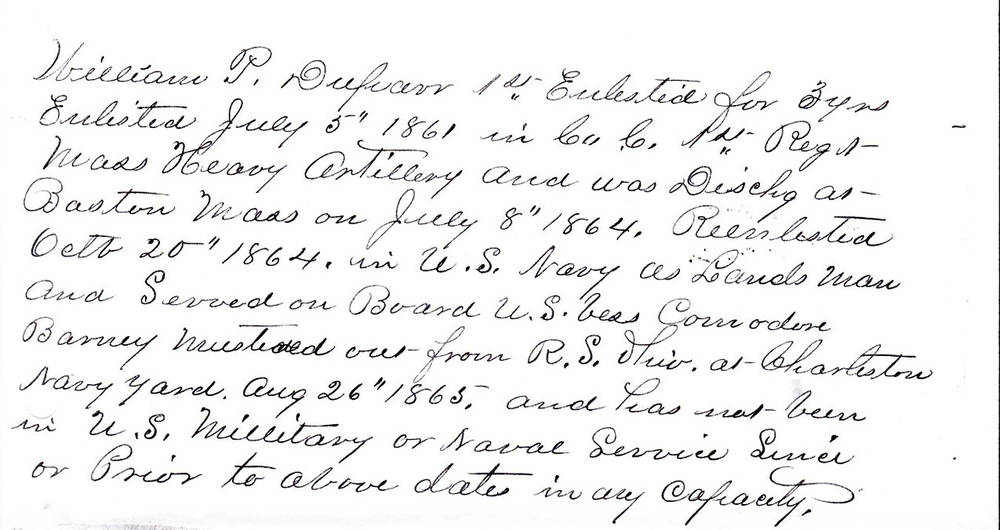 William P. Dufraor 1st Enlested for 3 yrs
Enlisted July 5" 1861 in Co C. 1st Regt
Mass Heavy Artillery and was Dischg at
Baston Mass on July 8" 1864. Reenlested
Octb 20" 1864. in U.S. Navy as Lands Man
and Served on Board U.S. Vess Comodore
Barney Mustered out from R.S. Ohio. at Charleston
Navy Yard. Aug 26" 1865. and has not been
in U.S. Millitary or Naval Service Since
or Prior to above dates in any Capacity.